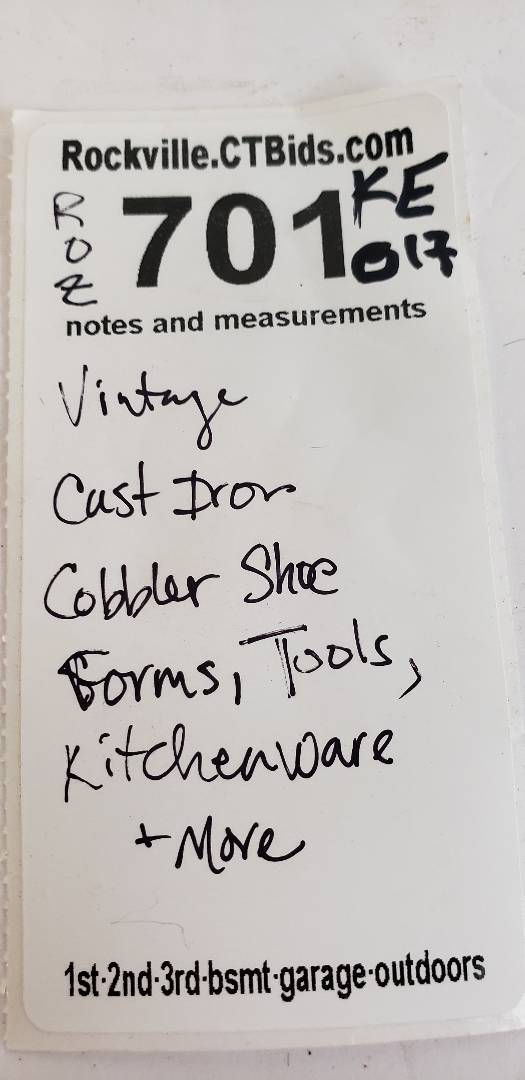 Rockville.CTBids.com
ROZ 701 KE 017
notes and measurements
Vintage
Cast Iron
Cobbler Shoe
Forms, Tools,
Kitchenware
+ More
1st·2nd·3rd·bsmt·garage·outdoors